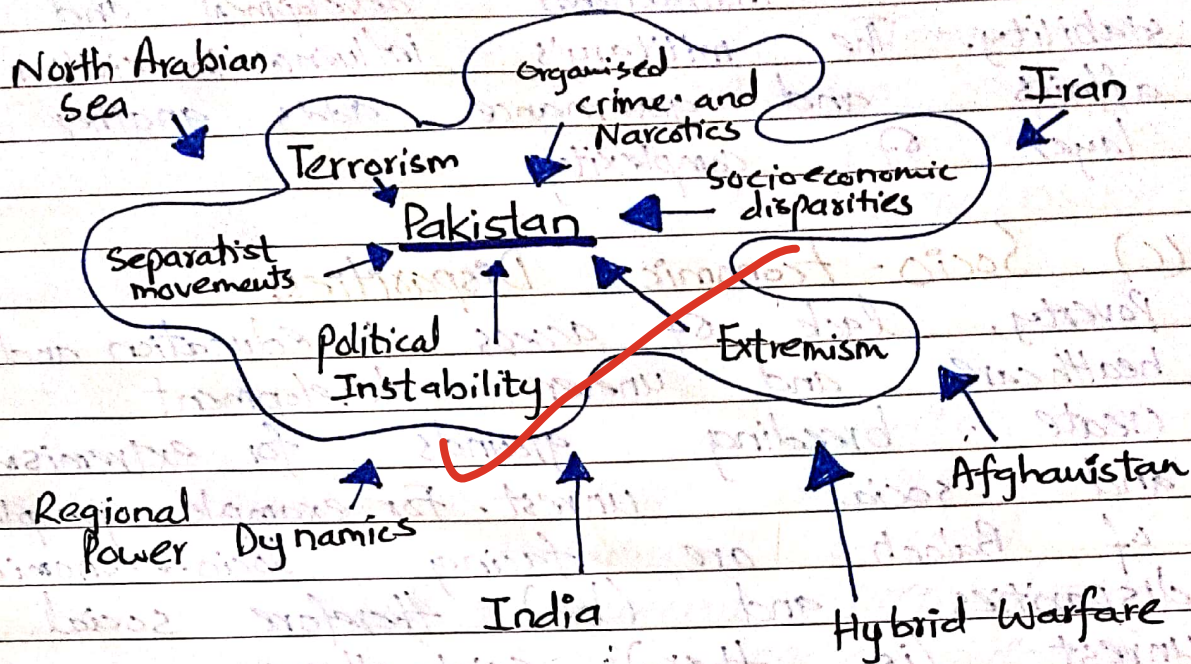 North Arabian
Sea.
Organised
crime and
Narcotics
Iran
Terrorism
Socioeconomic
disparities
Pakistan
Separatist
movements
Political
Instability
Extremism
Afghanistan
Regional
Power Dynamics
India
Hybrid Warfare